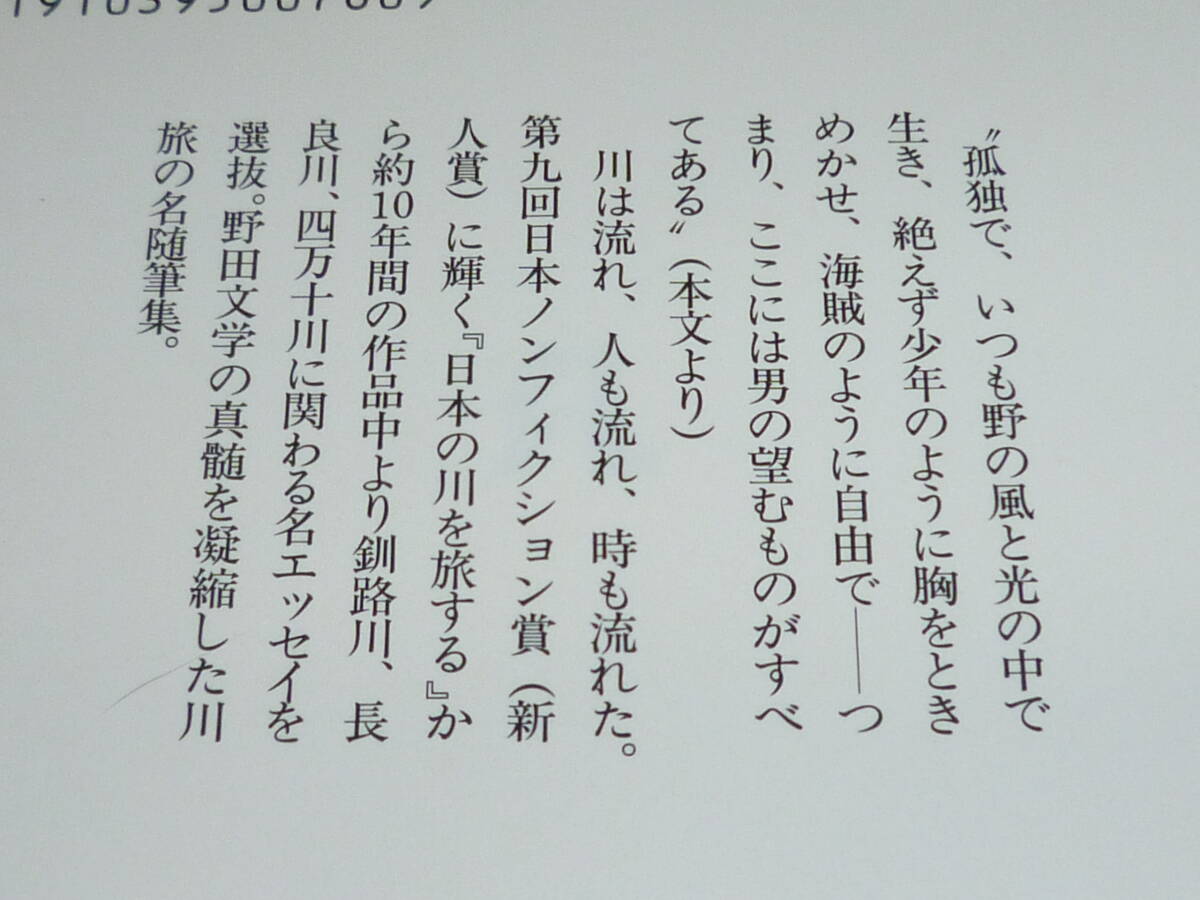 〝孤独で、いつも野の風と光の中で
生き、絶えず少年のように胸をとき
めかせ、海賊のように自由で――つ
まり、ここには男の望むものがすべ
てある〟（本文より）
川は流れ、人も流れ、時も流れた。
第九回日本ノンフィクション賞（新
人賞）に輝く『日本の川を旅する』か
ら約10年間の作品中より釧路川、長
良川、四万十川に関わる名エッセイを
選抜。野田文学の真髄を凝縮した川
旅の名随筆集。